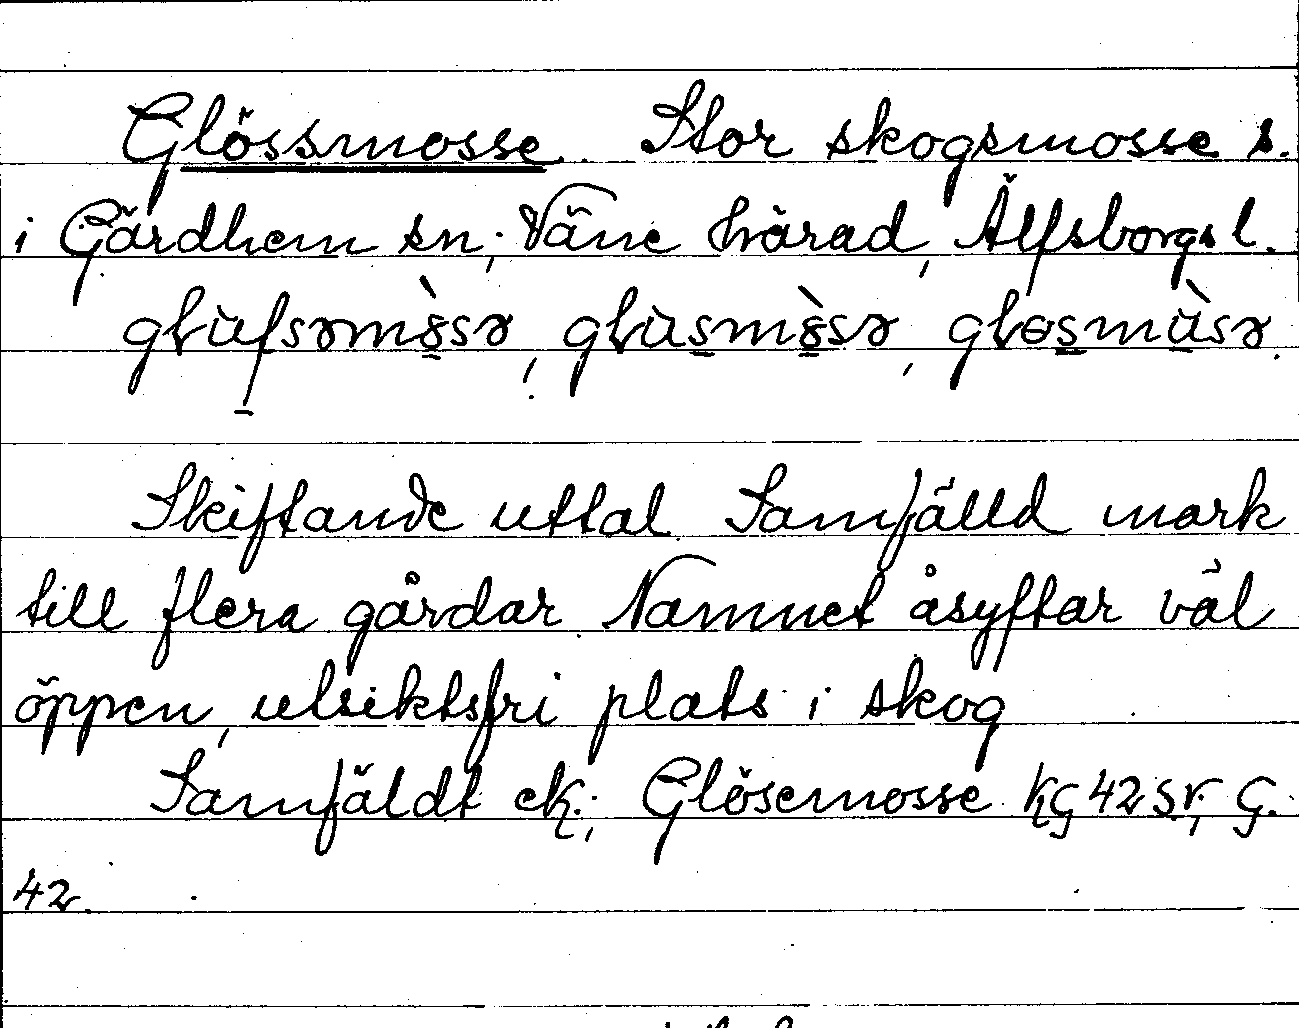 Glössmosse. Stor skogsmosse s.
i Gärdhem sn, Väne härad, Älfsborgs l.
glùfsəmòsə, glùsmòsə, gløsmùsə.
Skiftande uttal. Samfälld mark
till flera gårdar. Namnet åsyftar väl
öppen, utsiktsfri plats i skog
Samfäldt ek.; Glösemosse kG 42 sv, G.
42.